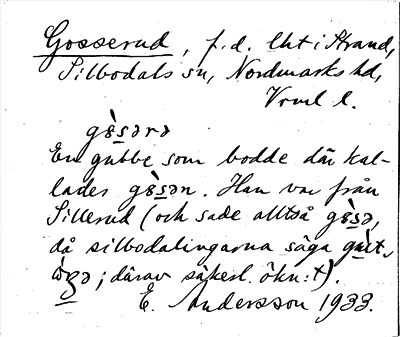 Gosserud, f.d. lht i Strand,
Silbodals sn, Nordmarks hd,
Vrml l.
gɵ̀sərə
En gubbe som bodde där kal-
lades gɵ̀sən. Han var från
Sillerud (och sade alltså gɵ̀sə,
då silbodalingarna säga
; därav säkerl. ökn:t).
E. Andersson 1933.